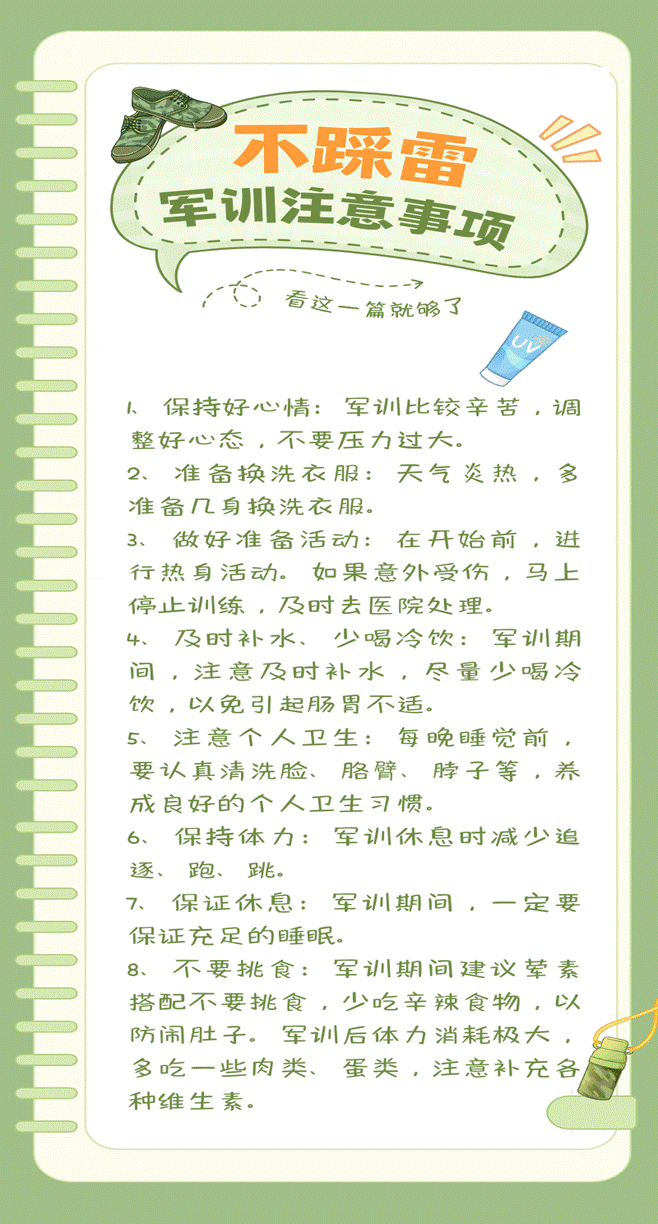 不踩雷
军训注意事项
看这一篇就够了
UV
1、保持好心情：军训比较辛苦，调
整好心态，不要压力过大。
2、准备换洗衣服：天气炎热，多
准备几身换洗衣服。
3、做好准备活动：在开始前，进
行热身活动。如果意外受伤，马上
停止训练，及时去医院处理。
4、及时补水、少喝冷饮：军训期
间，注意及时补水，尽量少喝冷
饮，以免引起肠胃不适。
5、注意个人卫生：每晚睡觉前，
要认真清洗脸、胳臂、脖子等，养
成良好的个人卫生习惯。
6、保持体力：军训休息时减少追
逐、跑、跳。
7、保证休息：军训期间，一定要
保证充足的睡眠。
8、不要挑食：军训期间建议荤素
搭配不要挑食，少吃辛辣食物，以
防闹肚子。军训后体力消耗极大，
多吃一些肉类、蛋类，注意补充各
种维生素。